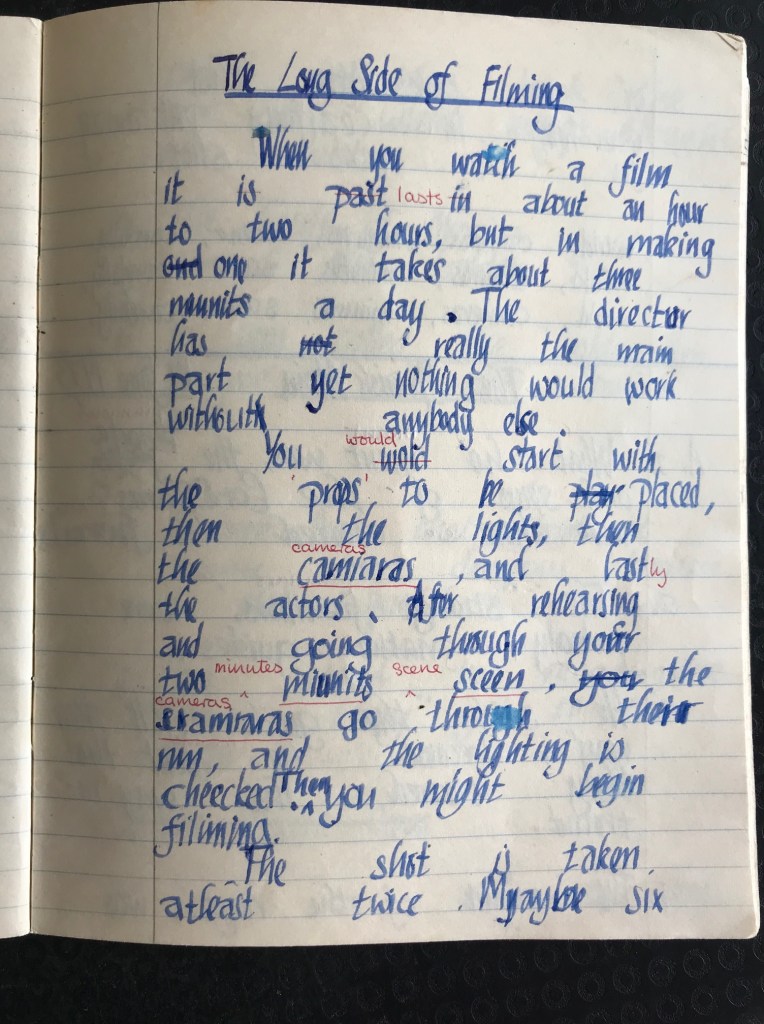 The Long Side of Filming
When you watch a film
it is past lasts in about an hour
to two hours, but in making
and one it takes about three
miunits a day. The director
has not really the main
part yet nothing would work
without anybody else.
would
You wold start with
the 'props' to be play placed,
then the lights, then
cameras
the camiaras, and lastly
the actors. After rehearsing
and going through your
minutes scene
two miunits sceen. you the
cameras
camraras go through their
run, and the lighting is
cheecked. Then you might begin
filiming.
The shot is taken
atleast twice. Mayabe six